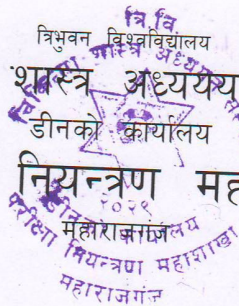 त्रिभुवन विश्वविद्यालय
शास्त्र अध्ययय
डीनको कार्यालय
नियन्त्रण मह
महाराजगंज
त्रि.वि.
२०२९
परीक्षा नियन्त्रण महाशाखा
महाराजगंज